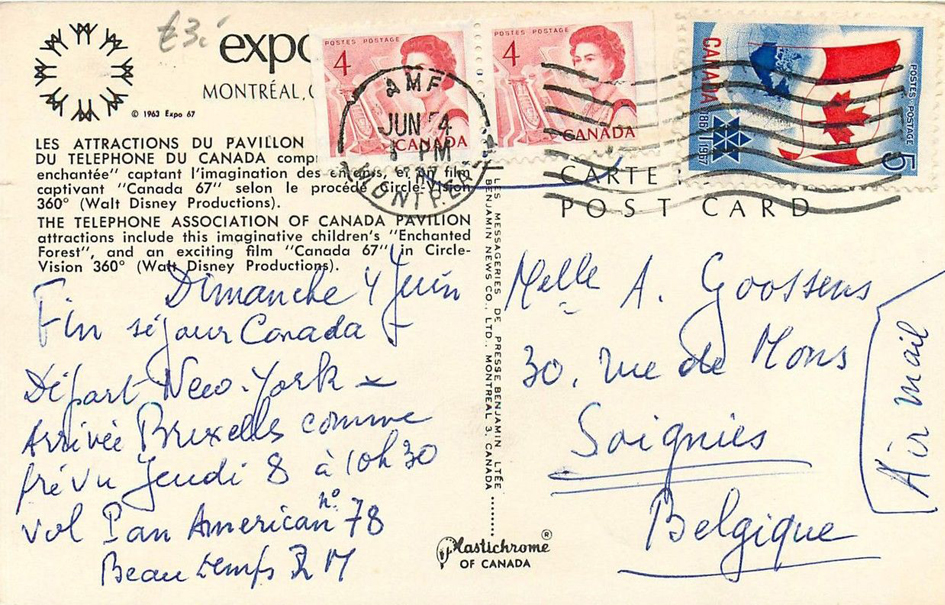 £3
expo
MONTRÉAL,
© 1963 Expo 67
LES ATTRACTIONS DU PAVILLON
DU TELEPHONE DU CANADA comp
enchantée" captant l'imagination des enfants, et un film
captivant "Canada 67" selon le procédé Circle-Vision
360° (Walt Disney Productions).
THE TELEPHONE ASSOCIATION OF CANADA PAVILION
attractions include this imaginative children's "Enchanted
Forest", and an exciting film "Canada 67" in Circle-
Vision 360° (Walt Disney Productions).
Dimanche 4 Juin
Fin séjour Canada
Départ New-York -
Arrivée Bruxelles comme
prévu Jeudi 8 à 10h30
vol Pan American n° 78
Beau temps
LES MESSAGERIES DE PRESSE BENJAMIN LTÉE
BENJAMIN NEWS CO., LTD., MONTREAL 3, CANADA
Plastichrome ®
OF CANADA
POSTES POSTAGE
4
CANADA
POSTES POSTAGE
4
CANADA
CANADA
1867 1967
POSTES POSTAGE
5
AMF
JUN 4
PM
MONTREAL
CARTE
POST CARD
Melle A. Goossens
30, rue de Mons
Soignies
Belgique
Air mail